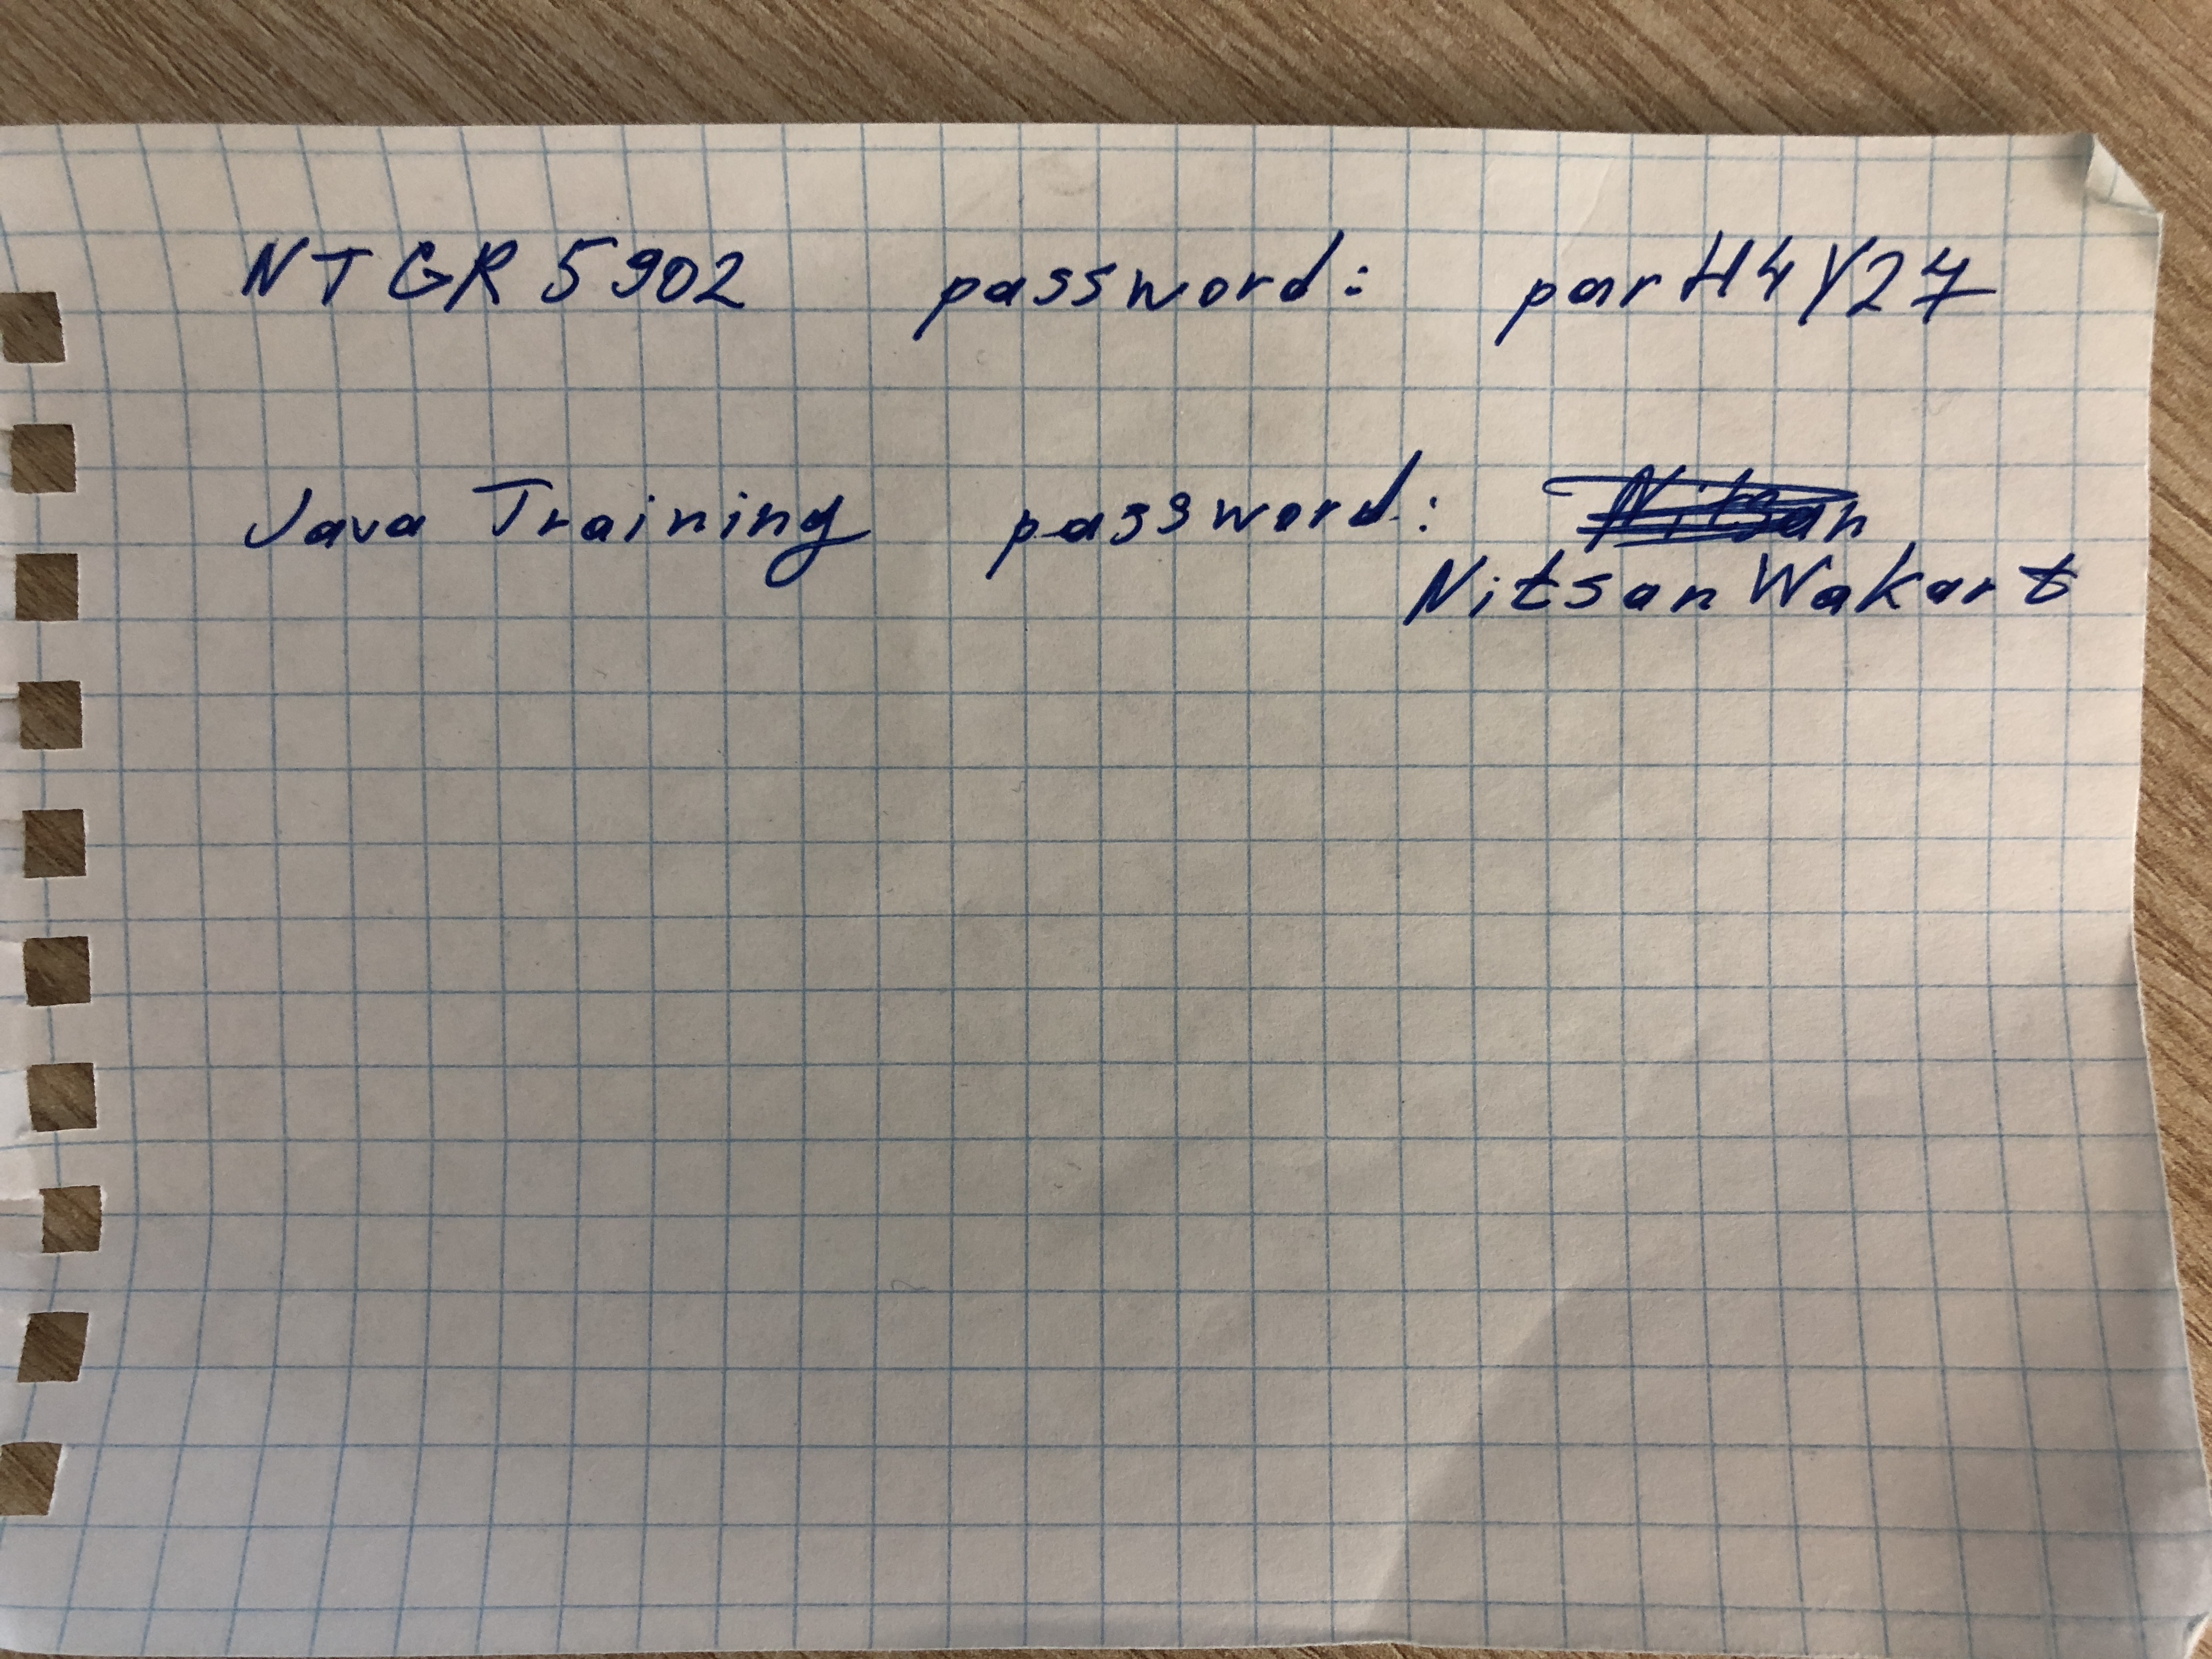 NTGR5902 password: parH4Y27
Java Training password: Nitsan
NitsanWakart